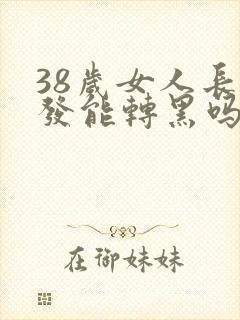 38歲女人長
發能轉黑嗎
在御妹妹